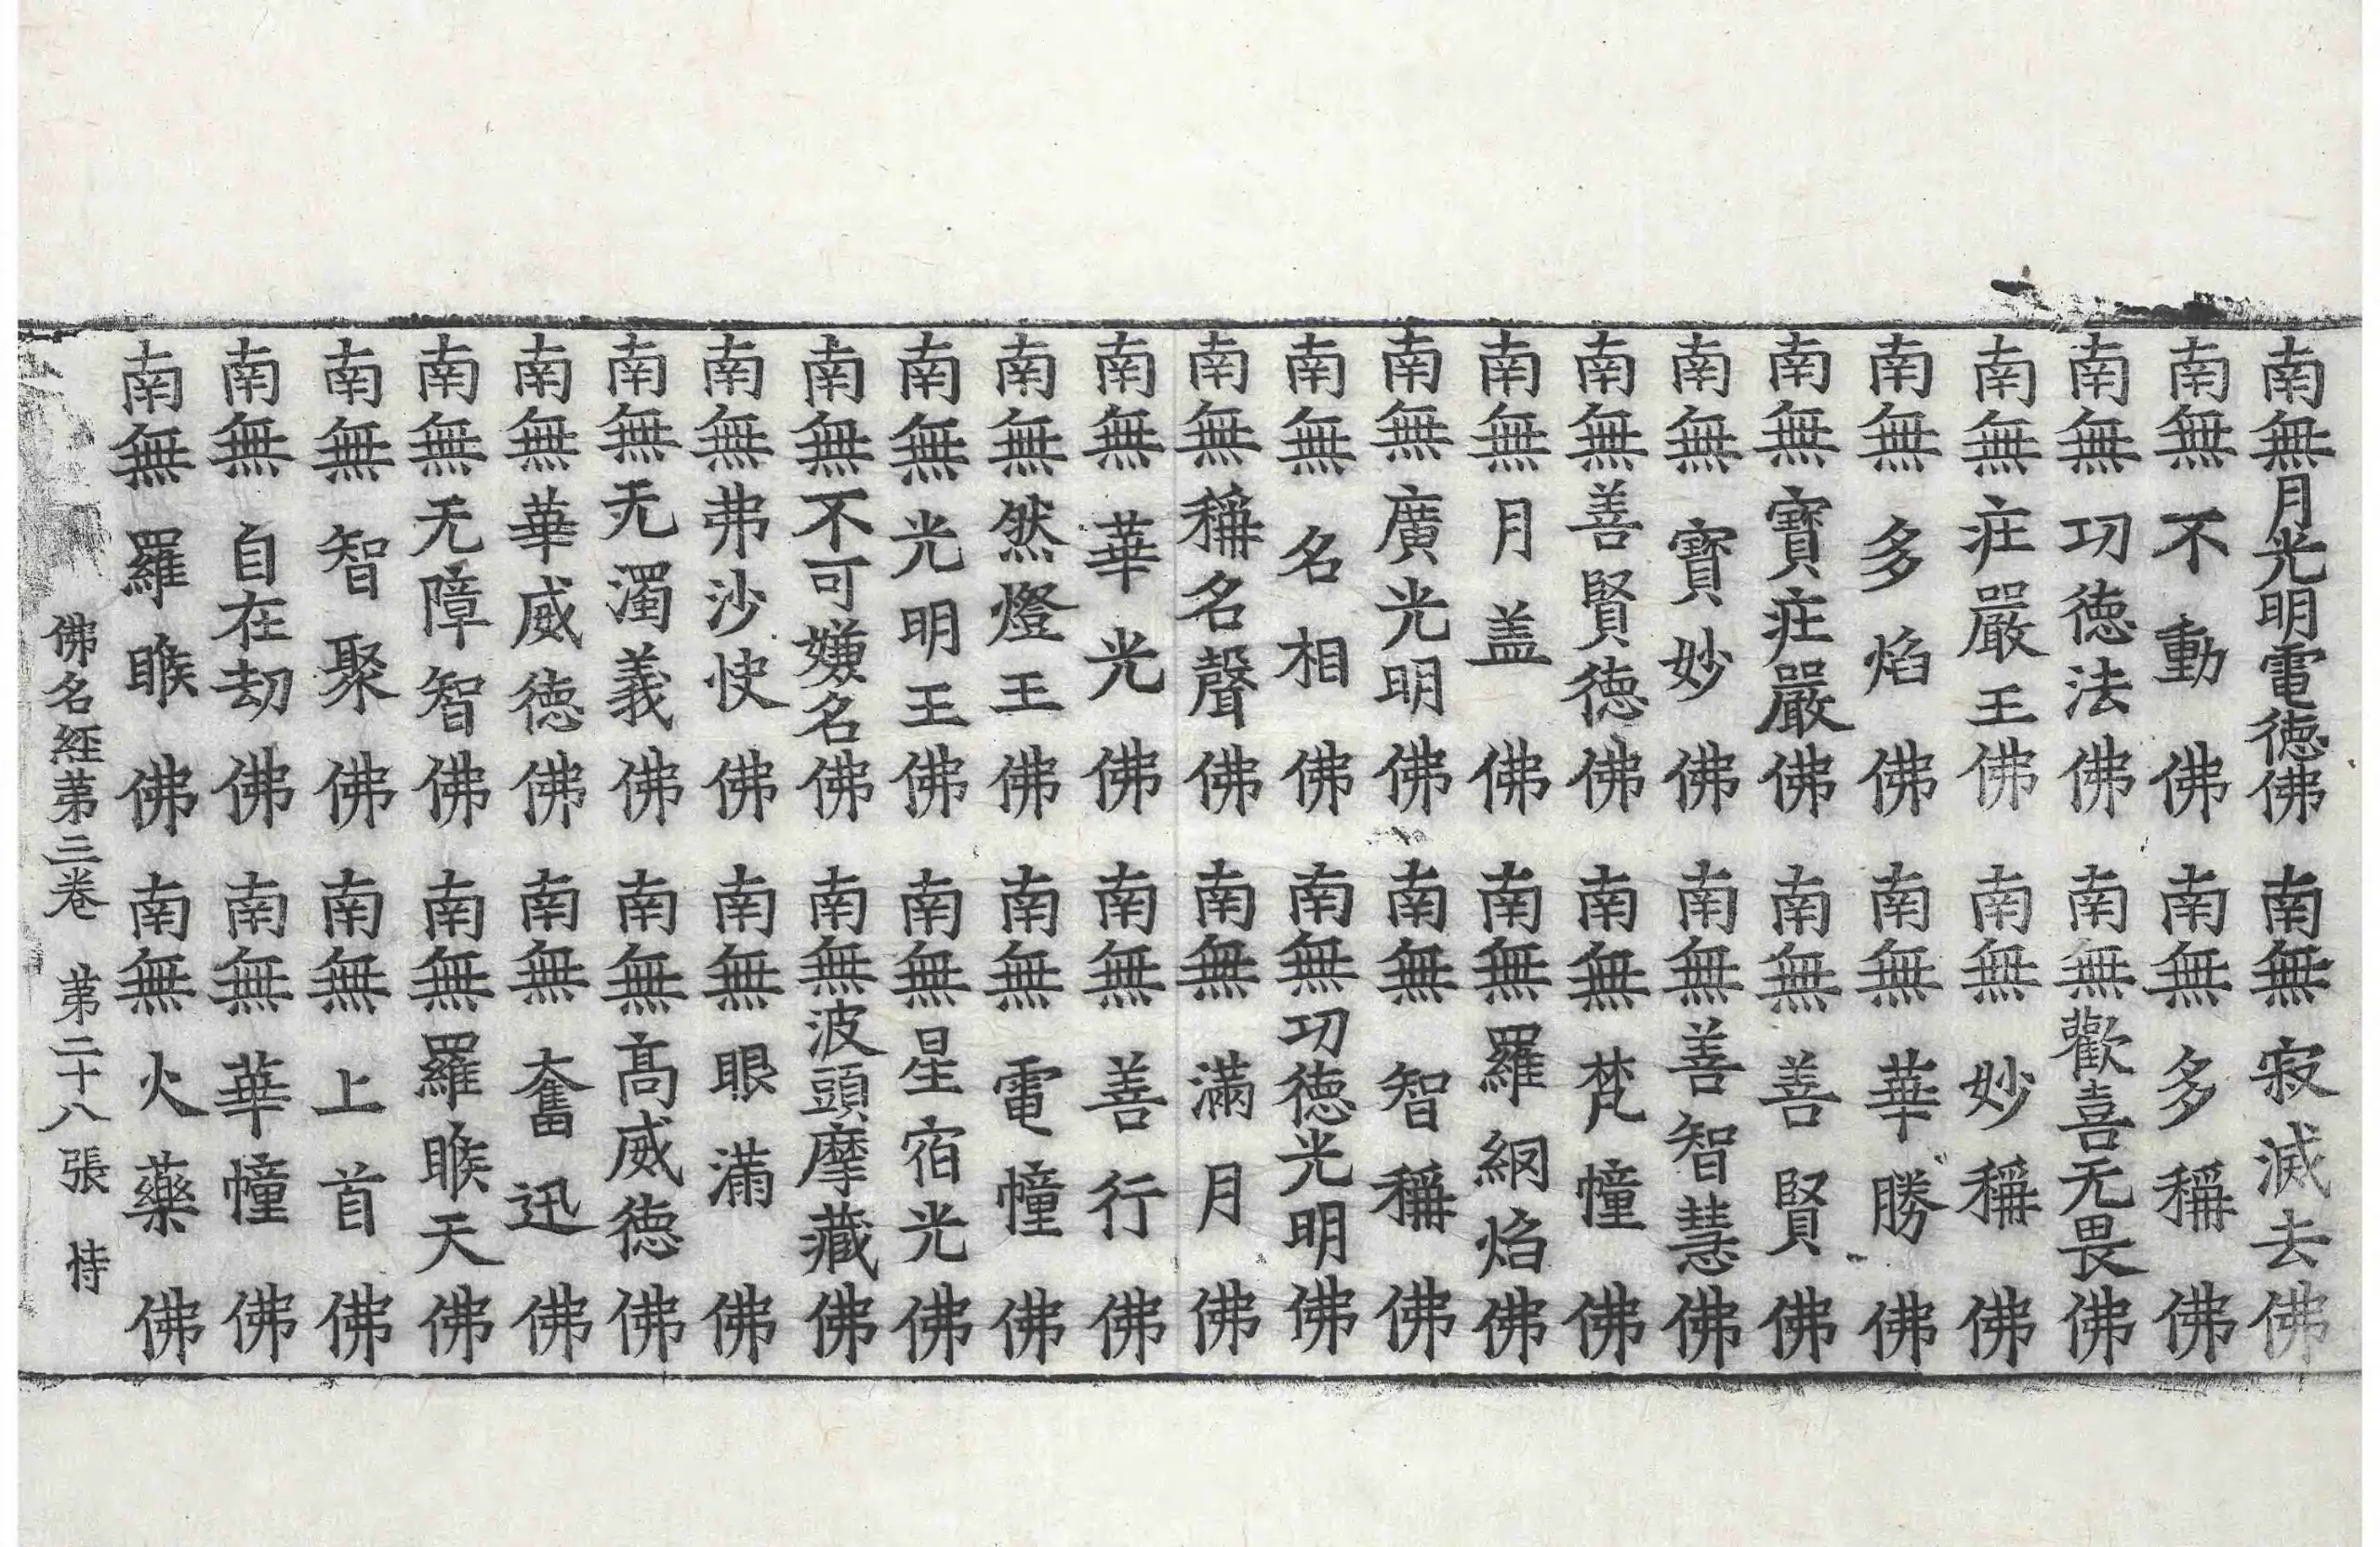 南無月光明電德佛　南無寂滅去佛
南無不動佛　南無多稱佛
南無功德法佛　南無歡喜无畏佛
南無庄嚴王佛　南無妙稱佛
南無多焰佛　南無華勝佛
南無寶庄嚴佛　南無善賢佛
南無寶妙佛　南無善智慧佛
南無善賢德佛　南無梵幢佛
南無月盖佛　南無羅網焰佛
南無廣光明佛　南無智稱佛
南無名相佛　南無功德光明佛
南無稱名聲佛　南無滿月佛
南無華光佛　南無善行佛
南無然燈王佛　南無電幢佛
南無光明王佛　南無星宿光佛
南無不可嫌名佛　南無波頭摩藏佛
南無弗沙佛　南無眼滿佛
南無无濁義佛　南無高威德佛
南無華威德佛　南無奮迅佛
南無无障智佛　南無羅睺天佛
南無智聚佛　南無上首佛
南無自在劫佛　南無華幢佛
南無羅睺佛　南無火藥佛
佛名經苐三卷　苐二十八張